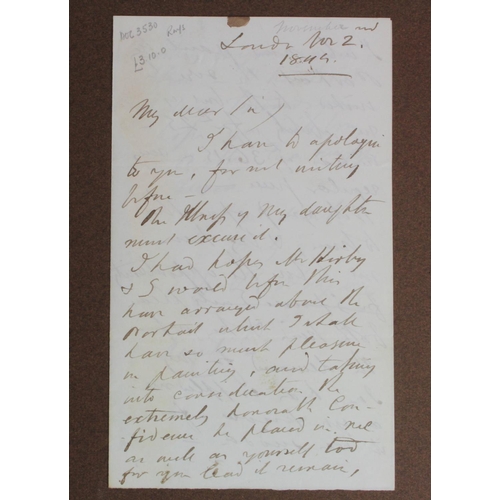 DOC 3530
£3.10.0
London Nov 2.
1849.
My dear Sir,
I have to apologise
to you, for not writing
before —
The Illness of My daughter
must excuse it.
I had hopes Mr Kirby
& I would before this
have arranged about the
Portrait which I shall
have so much pleasure
in painting, and taking
into consideration the
extremely honorable Con-
fidence he placed in me
as well as yourself too
for you lead it remain,